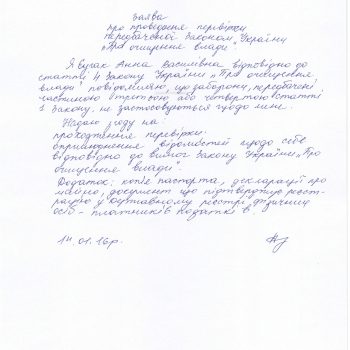 Заява
про проведення перевірки
передбаченої Законом України
„Про очищення влади".
Я Анна Василівна відповідно до
статті 4 Закону України „Про очищення
влади" повідомляю, що заборони, передбачені
частиною третьою або четвертою статті
1 Закону, не застосовуються щодо мене.
Надаю згоду на:
проходження перевірки;
оприлюднення відомостей щодо себе
відповідно до вимог Закону України „Про
очищення влади".
Додаток: копіє паспорта, декларації про
майно, документ що підтверджує реєст-
рацію у Державному реєстрі фізичних
осіб - платників податків.
14.01.16р.